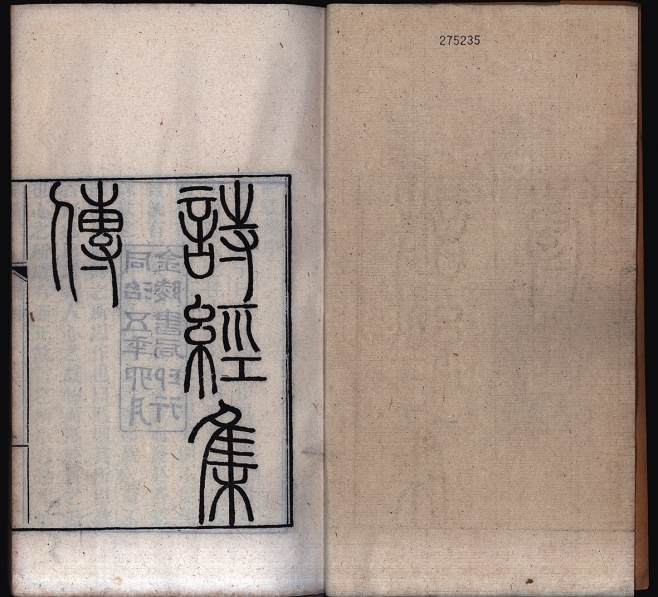 275235
詩經集
傳
同治五年卯月
金陵書局印行